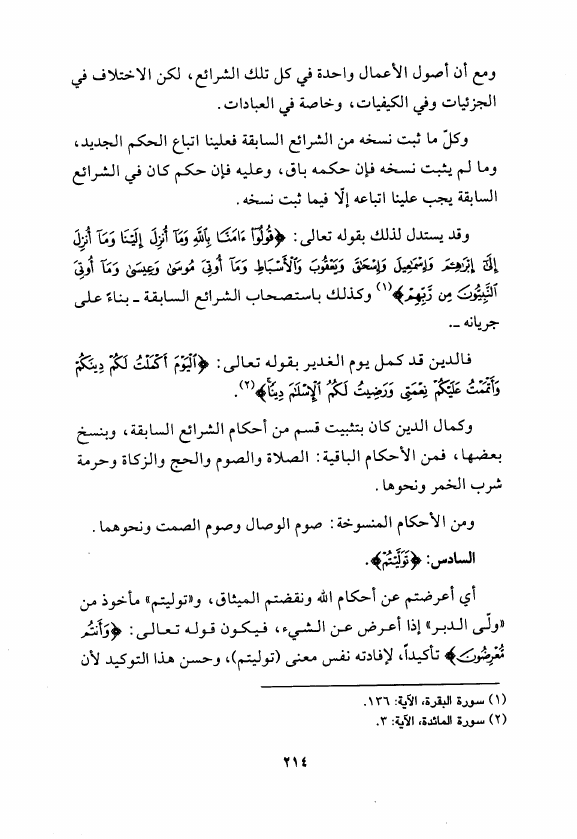 ومع أن أصول الأعمال واحدة في كل تلك الشرائع، لكن الاختلاف في
الجزئيات وفي الكيفيات، وخاصة في العبادات.
وكلّ ما ثبت نسخه من الشرائع السابقة فعلينا اتباع الحكم الجديد،
وما لم يثبت نسخه فإن حكمه باق، وعليه فإن حكم كان في الشرائع
السابقة يجب علينا اتباعه إلّا فيما ثبت نسخه.
وقد يستدل لذلك بقوله تعالى: ﴿قُولُوٓا۟ ءَامَنَّا بِٱللَّهِ وَمَآ أُنزِلَ إِلَيْنَا وَمَآ أُنزِلَ
إِلَىٰٓ إِبْرَٰهِـۧمَ وَإِسْمَٰعِيلَ وَإِسْحَٰقَ وَيَعْقُوبَ وَٱلْأَسْبَاطِ وَمَآ أُوتِىَ مُوسَىٰ وَعِيسَىٰ وَمَآ أُوتِىَ
ٱلنَّبِيُّونَ مِن رَّبِّهِمْ﴾(١) وكذلك باستصحاب الشرائع السابقة ـ بناءً على
جريانه ـ.
فالدين قد كمل يوم الغدير بقوله تعالى: ﴿ٱلْيَوْمَ أَكْمَلْتُ لَكُمْ دِينَكُمْ
وَأَتْمَمْتُ عَلَيْكُمْ نِعْمَتِى وَرَضِيتُ لَكُمُ ٱلْإِسْلَٰمَ دِينًا﴾(٢).
وكمال الدين كان بتثبيت قسم من أحكام الشرائع السابقة، وبنسخ
بعضها، فمن الأحكام الباقية: الصلاة والصوم والحج والزكاة وحرمة
شرب الخمر ونحوها.
ومن الأحكام المنسوخة: صوم الوصال وصوم الصمت ونحوهما.
السادس: ﴿تَوَلَّيْتُمْ﴾.
أي أعرضتم عن أحكام الله ونقضتم الميثاق، و«توليتم» مأخوذ من
«ولّى الدبر» إذا أعرض عن الشيء، فيكون قوله تعالى: ﴿وَأَنتُم
مُّعْرِضُونَ﴾ تأكيداً، لإفادته نفس معنى (توليتم)، وحسن هذا التوكيد لأن
(١) سورة البقرة، الآية: ١٣٦.
(٢) سورة المائدة، الآية: ٣.
٢١٤